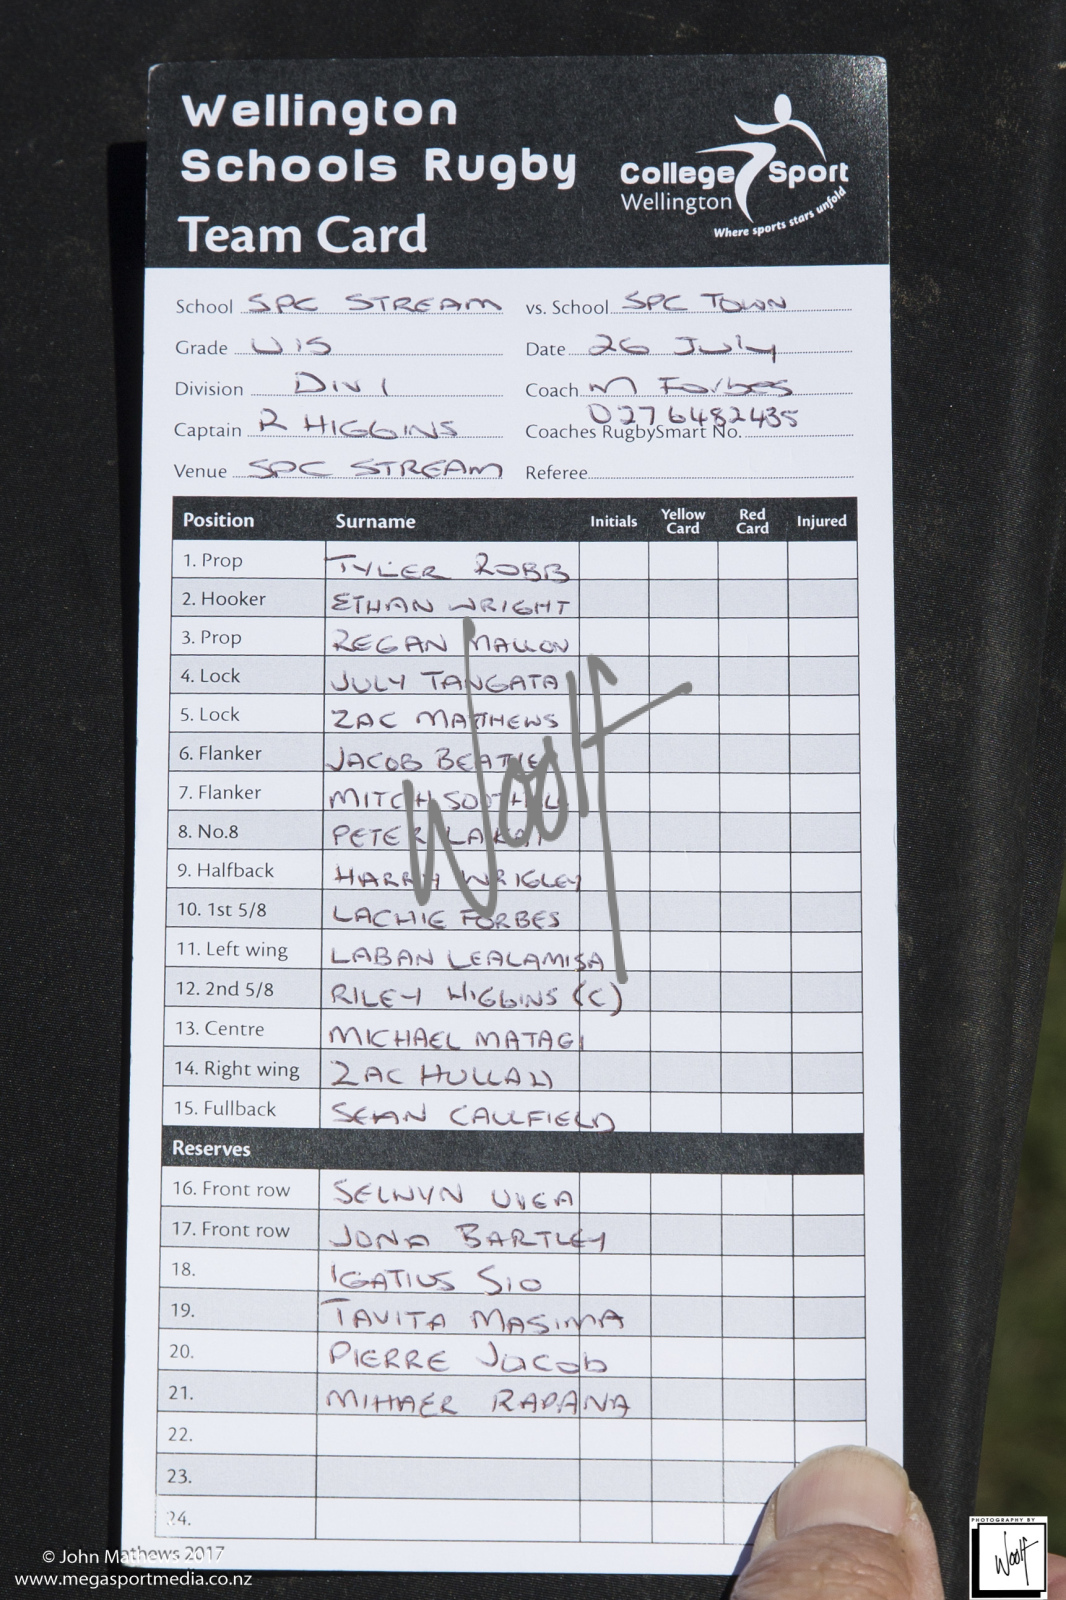 Wellington
Schools Rugby
Team Card
College Sport
Wellington
Where sports stars unfold
School SPC STREAM vs. School SPC TOWN
Grade U15 Date 26 July
Division Div 1 Coach M Forbes
0276482435
Captain R HIGGINS Coaches RugbySmart No.
Venue SPC STREAM Referee
Position Surname Initials Yellow Card Red Card Injured
1. Prop TYLER ROBB
2. Hooker ETHAN WRIGHT
3. Prop REGAN MALLON
4. Lock JULY TANGATA
5. Lock ZAC MATTHEWS
6. Flanker JACOB BEATTIE
7. Flanker MITCH
8. No.8 PETER LAKAI
9. Halfback HARRY WRIGLEY
10. 1st 5/8 LACHIE FORBES
11. Left wing LABAN LEALAMISA
12. 2nd 5/8 RILEY HIGGINS (C)
13. Centre MICHAEL MATAGI
14. Right wing ZAC
15. Fullback SEAN CAULFIELD
Reserves
16. Front row SELWYN UVEA
17. Front row JONA BARTLEY
18. IGATIUS SIO
19. TAVITA MASIMA
20. PIERRE Jacob
21. MIHAER RAPANA
22.
23.
24.
Woolf
© John Mathews 2017
www.megasportmedia.co.nz
PHOTOGRAPHY BY
Woolf